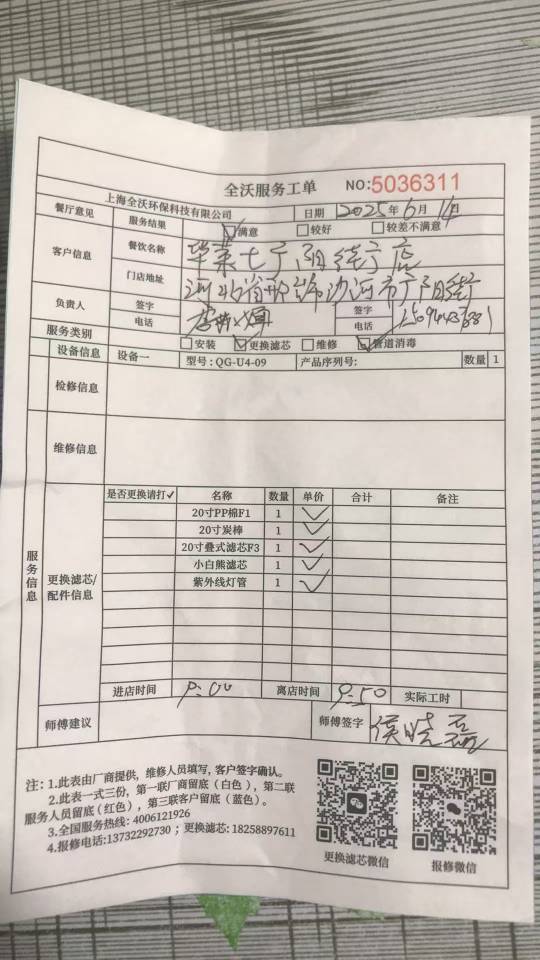 全沃服务工单 NO:5036311
上海全沃环保科技有限公司 日期 2025年6月14日
餐厅意见 服务结果 ☑满意 □较好 □较差不满意
客户信息 餐饮名称 华莱士 阳街店
门店地址 河北省邢 沙河市 阳街
负责人 签字 签字
电话 电话
服务类别 □安装 ☑更换滤芯 □维修 ☑管道消毒
设备信息 设备一 型号: QG-U4-09 产品序列号: 数量 1
检修信息
维修信息
服务信息
更换滤芯/配件信息
是否更换请打✓ 名称 数量 单价 合计 备注
20寸PP棉F1 1 ✓
20寸炭棒 1 ✓
20寸叠式滤芯F3 1 ✓
小白熊滤芯 1 ✓
紫外线灯管 1 ✓
进店时间 9:00 离店时间 9:50 实际工时
师傅建议 师傅签字 侯晓磊
注: 1.此表由厂商提供, 维修人员填写, 客户签字确认。
2.此表一式三份, 第一联厂商留底 (白色), 第二联
服务人员留底 (红色), 第三联客户留底 (蓝色)。
3.全国服务热线: 4006121926
4.报修电话:13732292730 ; 更换滤芯: 18258897611
更换滤芯微信 报修微信